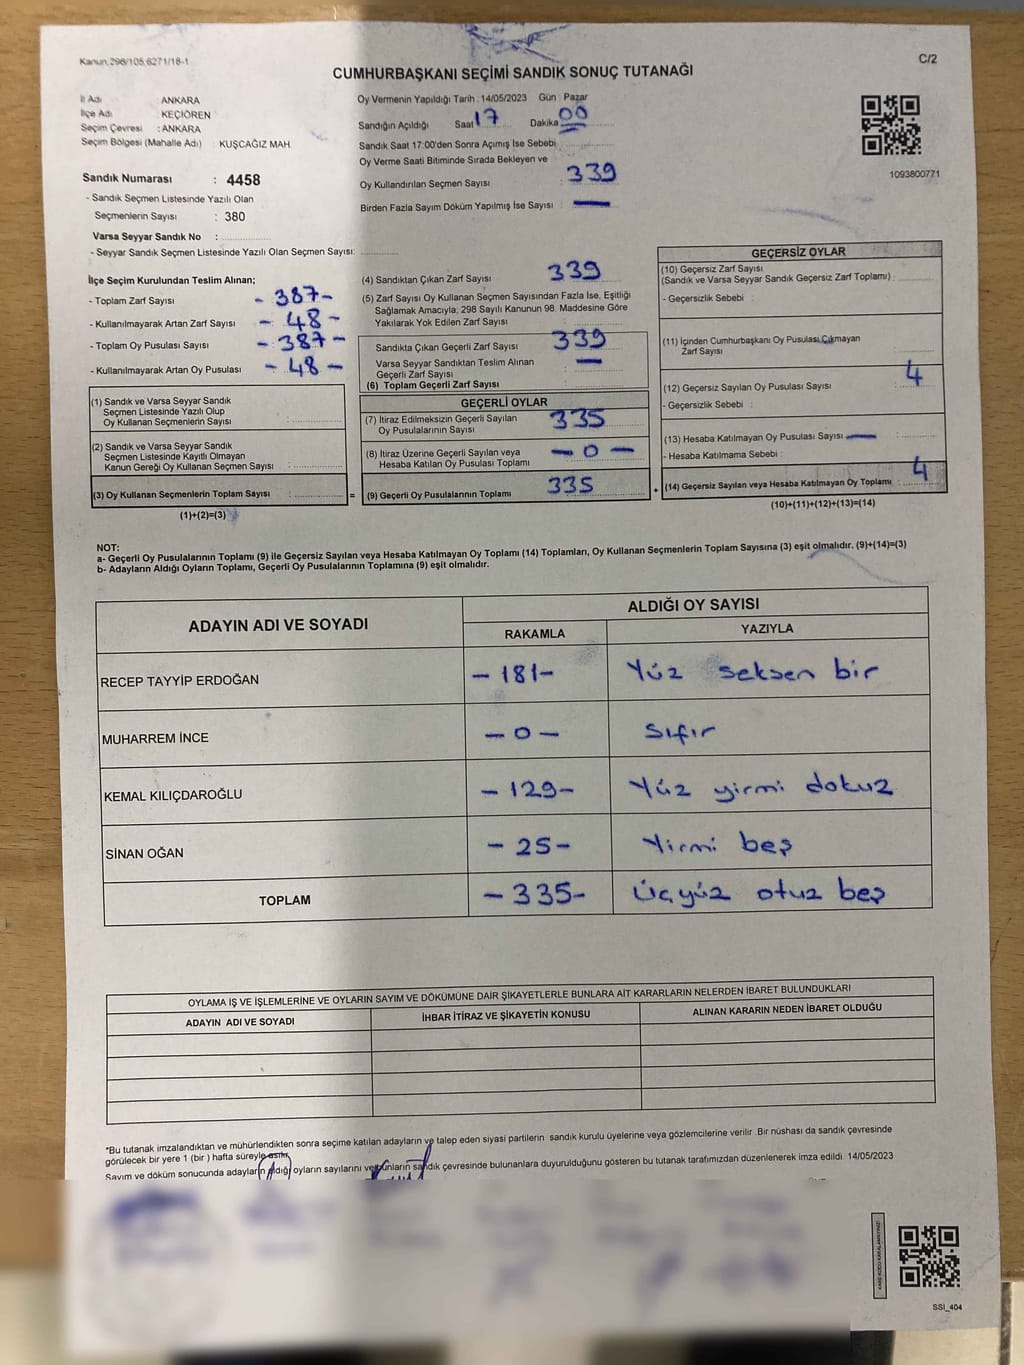 Kanun.298/105,6271/18-1
C/2
CUMHURBAŞKANI SEÇİMİ SANDIK SONUÇ TUTANAĞI
İl Adı : ANKARA
İlçe Adı : KEÇİÖREN
Seçim Çevresi : ANKARA
Seçim Bölgesi (Mahalle Adı) : KUŞCAĞIZ MAH.
Sandık Numarası : 4458
- Sandık Seçmen Listesinde Yazılı Olan
Seçmenlerin Sayısı : 380
Varsa Seyyar Sandık No :
- Seyyar Sandık Seçmen Listesinde Yazılı Olan Seçmen Sayısı:
Oy Vermenin Yapıldığı Tarih : 14/05/2023 Gün : Pazar
Sandığın Açıldığı Saat 17 Dakika 00
Sandık Saat 17:00'den Sonra Açımış İse Sebebi :
Oy Verme Saati Bitiminde Sırada Bekleyen ve
Oy Kullandırılan Seçmen Sayısı 339
Birden Fazla Sayım Döküm Yapılmış İse Sayısı : —
1093800771
İlçe Seçim Kurulundan Teslim Alınan;
- Toplam Zarf Sayısı - 387-
- Kullanılmayarak Artan Zarf Sayısı - 48 -
- Toplam Oy Pusulası Sayısı - 387 -
- Kullanılmayarak Artan Oy Pusulası - 48 -
(1) Sandık ve Varsa Seyyar Sandık
Seçmen Listesinde Yazılı Olup
Oy Kullanan Seçmenlerin Sayısı :
(2) Sandık ve Varsa Seyyar Sandık
Seçmen Listesinde Kayıtlı Olmayan
Kanun Gereği Oy Kullanan Seçmen Sayısı :
(3) Oy Kullanan Seçmenlerin Toplam Sayısı : =
(1)+(2)=(3)
(4) Sandıktan Çıkan Zarf Sayısı 339
(5) Zarf Sayısı Oy Kullanan Seçmen Sayısından Fazla İse, Eşitliği
Sağlamak Amacıyla; 298 Sayılı Kanunun 98. Maddesine Göre
Yakılarak Yok Edilen Zarf Sayısı :
Sandıkta Çıkan Geçerli Zarf Sayısı 339
Varsa Seyyar Sandıktan Teslim Alınan
Geçerli Zarf Sayısı —
(6) Toplam Geçerli Zarf Sayısı
GEÇERLİ OYLAR
(7) İtiraz Edilmeksizin Geçerli Sayılan
Oy Pusulalarının Sayısı 335
(8) İtiraz Üzerine Geçerli Sayılan veya
Hesaba Katılan Oy Pusulası Toplamı - 0 -
(9) Geçerli Oy Pusulalarının Toplamı 335 +
GEÇERSİZ OYLAR
(10) Geçersiz Zarf Sayısı
(Sandık ve Varsa Seyyar Sandık Geçersiz Zarf Toplamı) :
- Geçersizlik Sebebi :
(11) İçinden Cumhurbaşkanı Oy Pusulası Çıkmayan
Zarf Sayısı
(12) Geçersiz Sayılan Oy Pusulası Sayısı 4
- Geçersizlik Sebebi :
(13) Hesaba Katılmayan Oy Pusulası Sayısı —
- Hesaba Katılmama Sebebi :
(14) Geçersiz Sayılan veya Hesaba Katılmayan Oy Toplamı : 4
(10)+(11)+(12)+(13)=(14)
NOT:
a- Geçerli Oy Pusulalarının Toplamı (9) ile Geçersiz Sayılan veya Hesaba Katılmayan Oy Toplamı (14) Toplamları, Oy Kullanan Seçmenlerin Toplam Sayısına (3) eşit olmalıdır. (9)+(14)=(3)
b- Adayların Aldığı Oyların Toplamı, Geçerli Oy Pusulalarının Toplamına (9) eşit olmalıdır.
ADAYIN ADI VE SOYADI
ALDIĞI OY SAYISI
RAKAMLA YAZIYLA
RECEP TAYYİP ERDOĞAN - 181- Yüz seksen bir
MUHARREM İNCE - 0 - Sıfır
KEMAL KILIÇDAROĞLU - 129- Yüz yirmi dokuz
SİNAN OĞAN - 25- Yirmi beş
TOPLAM - 335- Üçyüz otuz beş
OYLAMA İŞ VE İŞLEMLERİNE VE OYLARIN SAYIM VE DÖKÜMÜNE DAİR ŞİKAYETLERLE BUNLARA AİT KARARLARIN NELERDEN İBARET BULUNDUKLARI
ADAYIN ADI VE SOYADI İHBAR İTİRAZ VE ŞİKAYETİN KONUSU ALINAN KARARIN NEDEN İBARET OLDUĞU
*Bu tutanak imzalandıktan ve mühürlendikten sonra seçime katılan adayların ve talep eden siyasi partilerin sandık kurulu üyelerine veya gözlemcilerine verilir. Bir nüshası da sandık çevresinde
görülecek bir yere 1 (bir ) hafta süreyle asılır.
Sayım ve döküm sonucunda adayların aldığı oyların sayılarını ve bunların sandık çevresinde bulunanlara duyurulduğunu gösteren bu tutanak tarafımızdan düzenlenerek imza edildi. 14/05/2023
SSI_404